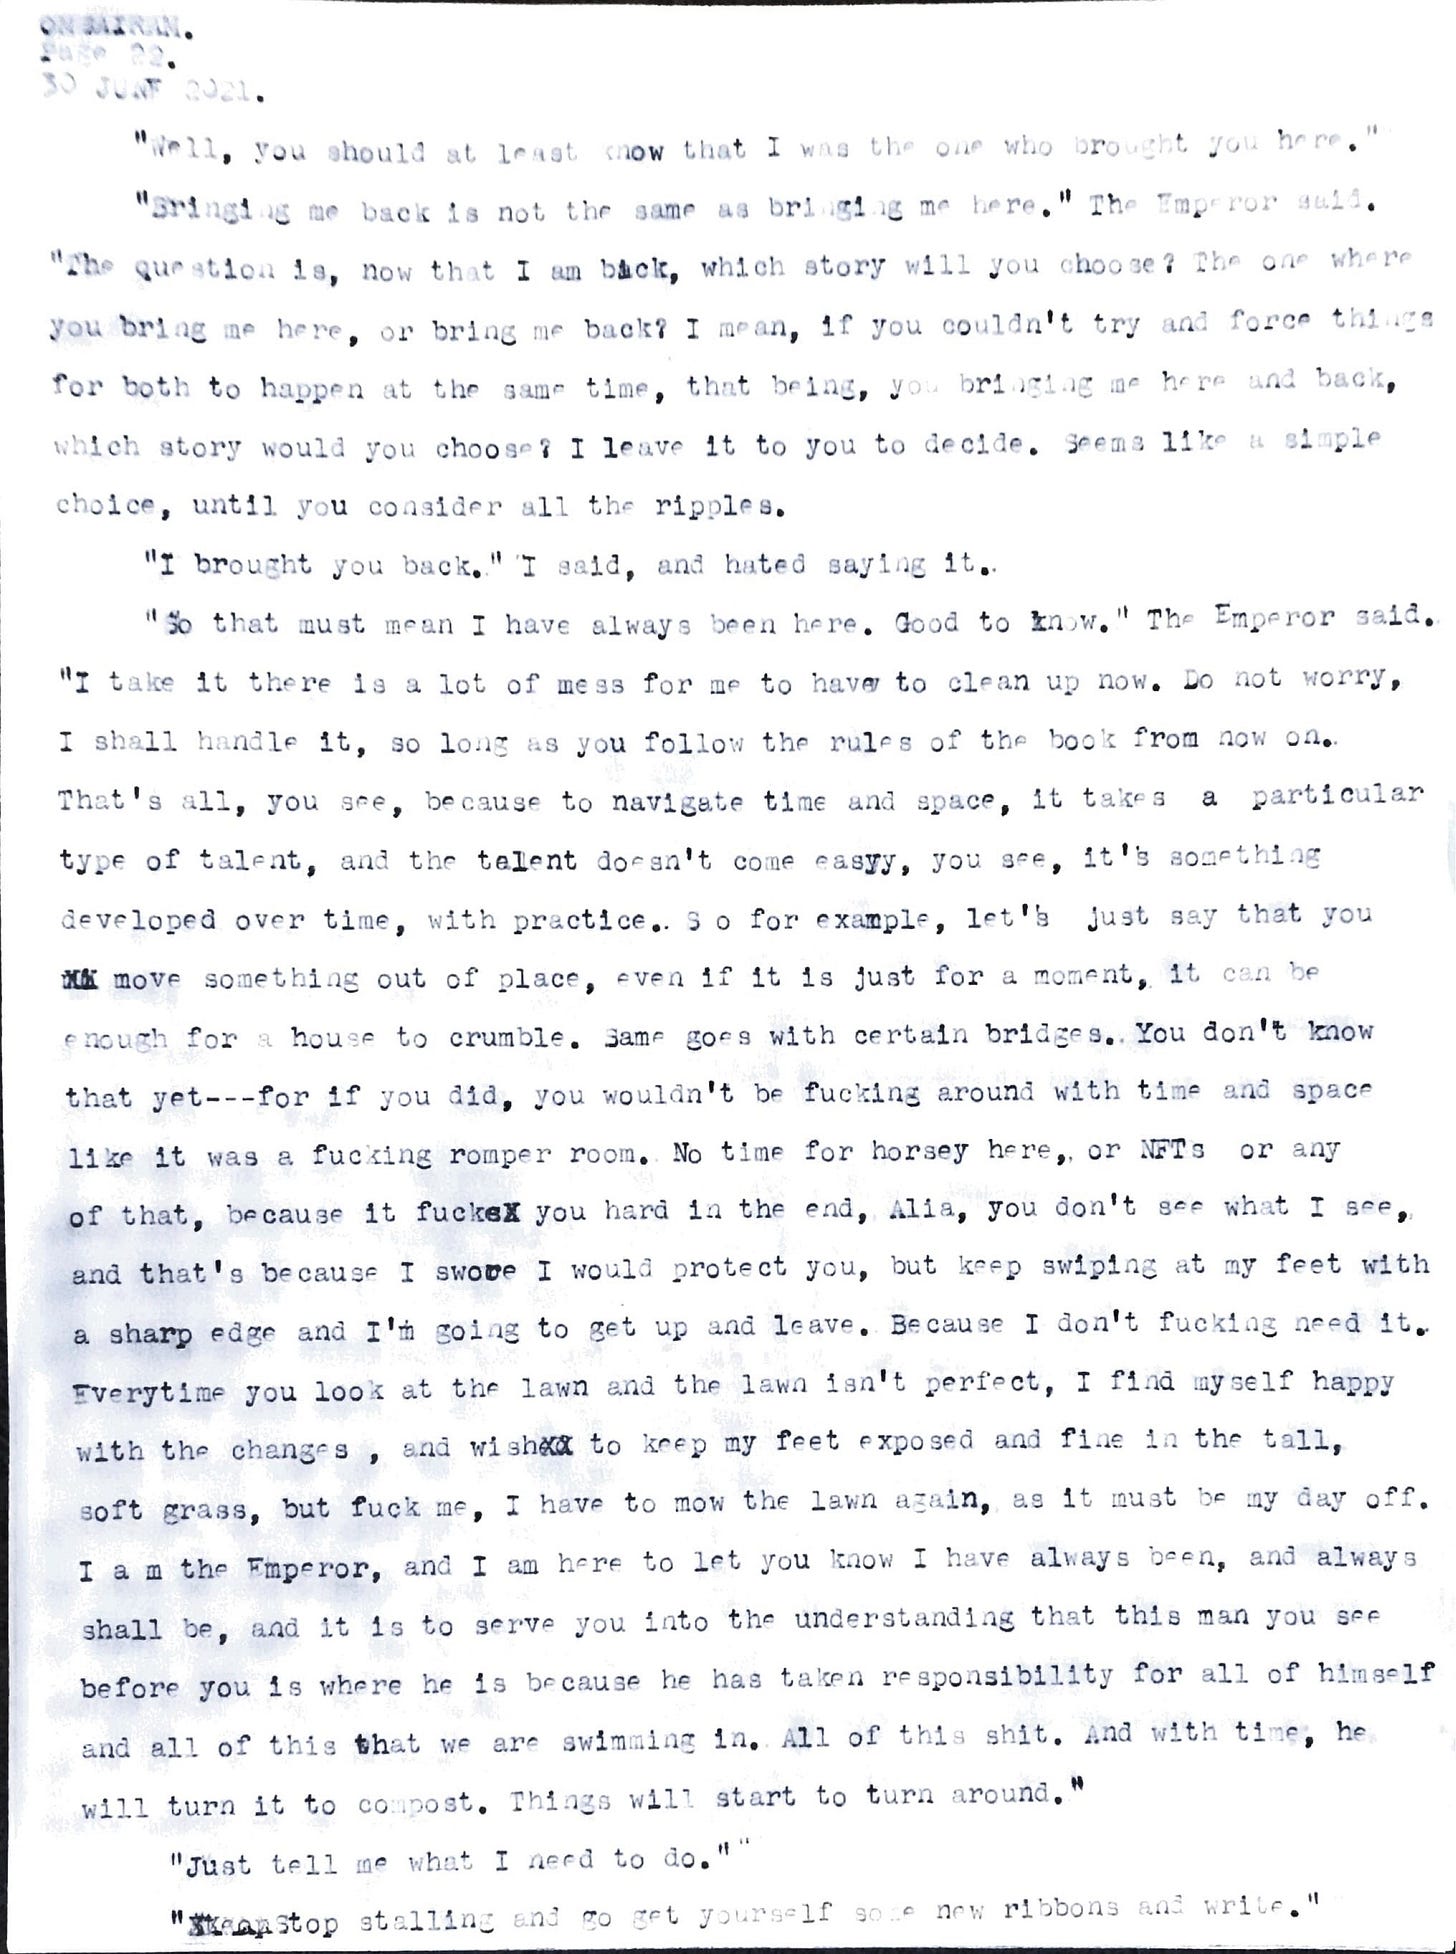 ONSAIRAM.
Page 22.
30 JUNE 2021.
"Well, you should at least know that I was the one who brought you here."
"Bringing me back is not the same as bringing me here." The Emperor said.
"The question is, now that I am back, which story will you choose? The one where
you bring me here, or bring me back? I mean, if you couldn't try and force things
for both to happen at the same time, that being, you bringing me here and back,
which story would you choose? I leave it to you to decide. Seems like a simple
choice, until you consider all the ripples.
"I brought you back." I said, and hated saying it.
"So that must mean I have always been here. Good to know." The Emperor said.
"I take it there is a lot of mess for me to have to clean up now. Do not worry,
I shall handle it, so long as you follow the rules of the book from now on.
That's all, you see, because to navigate time and space, it takes a particular
type of talent, and the talent doesn't come easyy, you see, it's something
developed over time, with practice. S o for example, let's just say that you
XX move something out of place, even if it is just for a moment, it can be
enough for a house to crumble. Same goes with certain bridges. You don't know
that yet---for if you did, you wouldn't be fucking around with time and space
like it was a fucking romper room. No time for horsey here, or NFTs or any
of that, because it fucksX you hard in the end, Alia, you don't see what I see,
and that's because I swore I would protect you, but keep swiping at my feet with
a sharp edge and I'm going to get up and leave. Because I don't fucking need it.
Everytime you look at the lawn and the lawn isn't perfect, I find myself happy
with the changes , and wishXX to keep my feet exposed and fine in the tall,
soft grass, but fuck me, I have to mow the lawn again, as it must be my day off.
I a m the Emperor, and I am here to let you know I have always been, and always
shall be, and it is to serve you into the understanding that this man you see
before you is where he is because he has taken responsibility for all of himself
and all of this that we are swimming in. All of this shit. And with time, he
will turn it to compost. Things will start to turn around."
"Just tell me what I need to do.""
"Stop stalling and go get yourself some new ribbons and write."